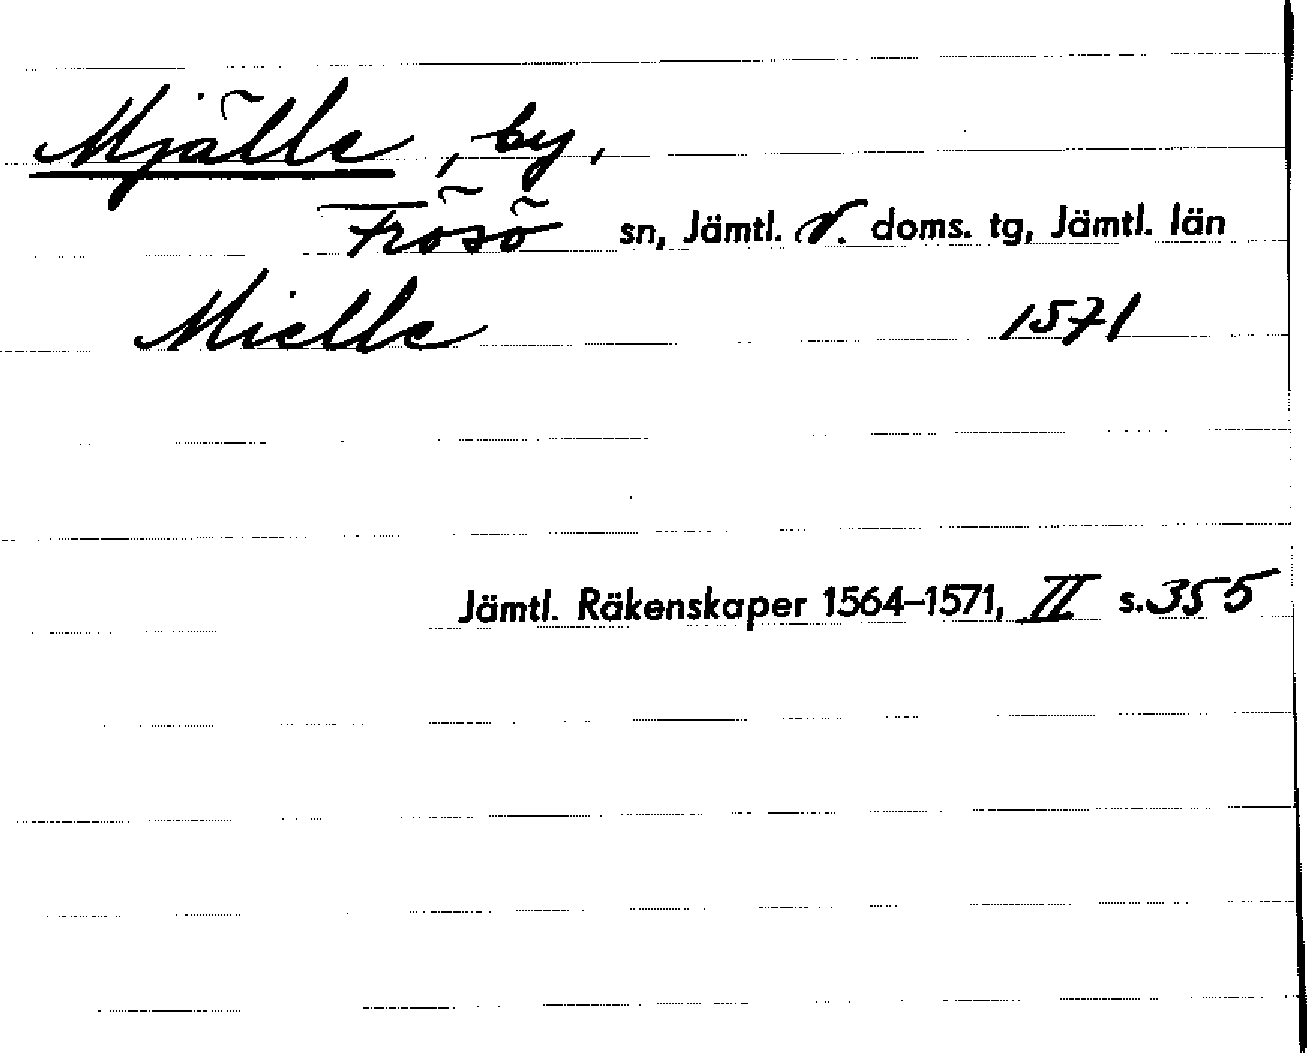 Mjälle, by,
Frösö sn, Jämtl. v. doms. tg, Jämtl. län
Mielle 1571
Jämtl. Räkenskaper 1564–1571, II s. 355